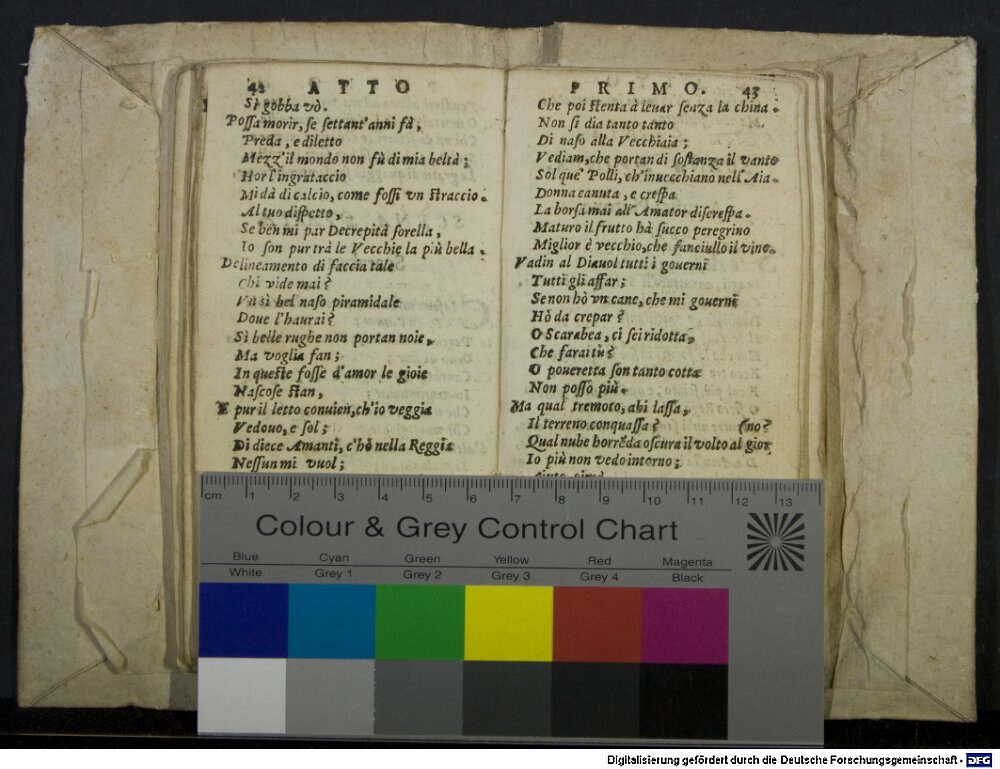 42 ATTO
Sì gobba vò.
Possa morir, se settant'anni fà,
Preda, e diletto
Mezz'il mondo non fù di mia beltà;
Hor l'ingrataccio
Mi dà di calcio, come fossi vn straccio.
Al tuo dispetto,
Se ben mi par Decrepità sorella,
Io son pur trà le Vecchie la più bella.
Delineamento di faccia tale
Chi vide mai?
Vn sì bel naso piramidale
Doue l'haurai?
Sì belle rughe non portan noie,
Ma voglia fan;
In queste fosse d'amor le gioie
Nascose stan,
E pur il letto conuien, ch'io veggia
Vedouo, e sol;
Di diece Amanti, c'hò nella Reggia
Nessun mi vuol;
PRIMO. 43
Che poi stenta à leuar senza la china.
Non si dia tanto tanto
Di naso alla Vecchiaia;
Vediam, che portan di sostanza il vanto
Sol que' Polli, ch'inuecchiano nell'Aia.
Donna canuta, e crespa
La borsa mai all'Amator discrespa.
Maturo il frutto hà succo peregrino
Miglior è vecchio, che fanciullo il vino.
Vadin al Diauol tutti i gouerni
Tutti gli affar;
Se non hò vn cane, che mi gouerni
Hò da crepar?
O Scarabea, ci sei ridotta,
Che farai tù?
O poueretta son tanto cotta
Non posso più.
Ma qual tremoto, ahi lassa,
Il terreno conquassa? (no?
Qual nube horrẽda oscura il volto al gior
Io più non vedo intorno;
cm 1 2 3 4 5 6 7 8 9 10 11 12 13
Colour & Grey Control Chart
Blue Cyan Green Yellow Red Magenta
White Grey 1 Grey 2 Grey 3 Grey 4 Black
Digitalisierung gefördert durch die Deutsche Forschungsgemeinschaft - DFG